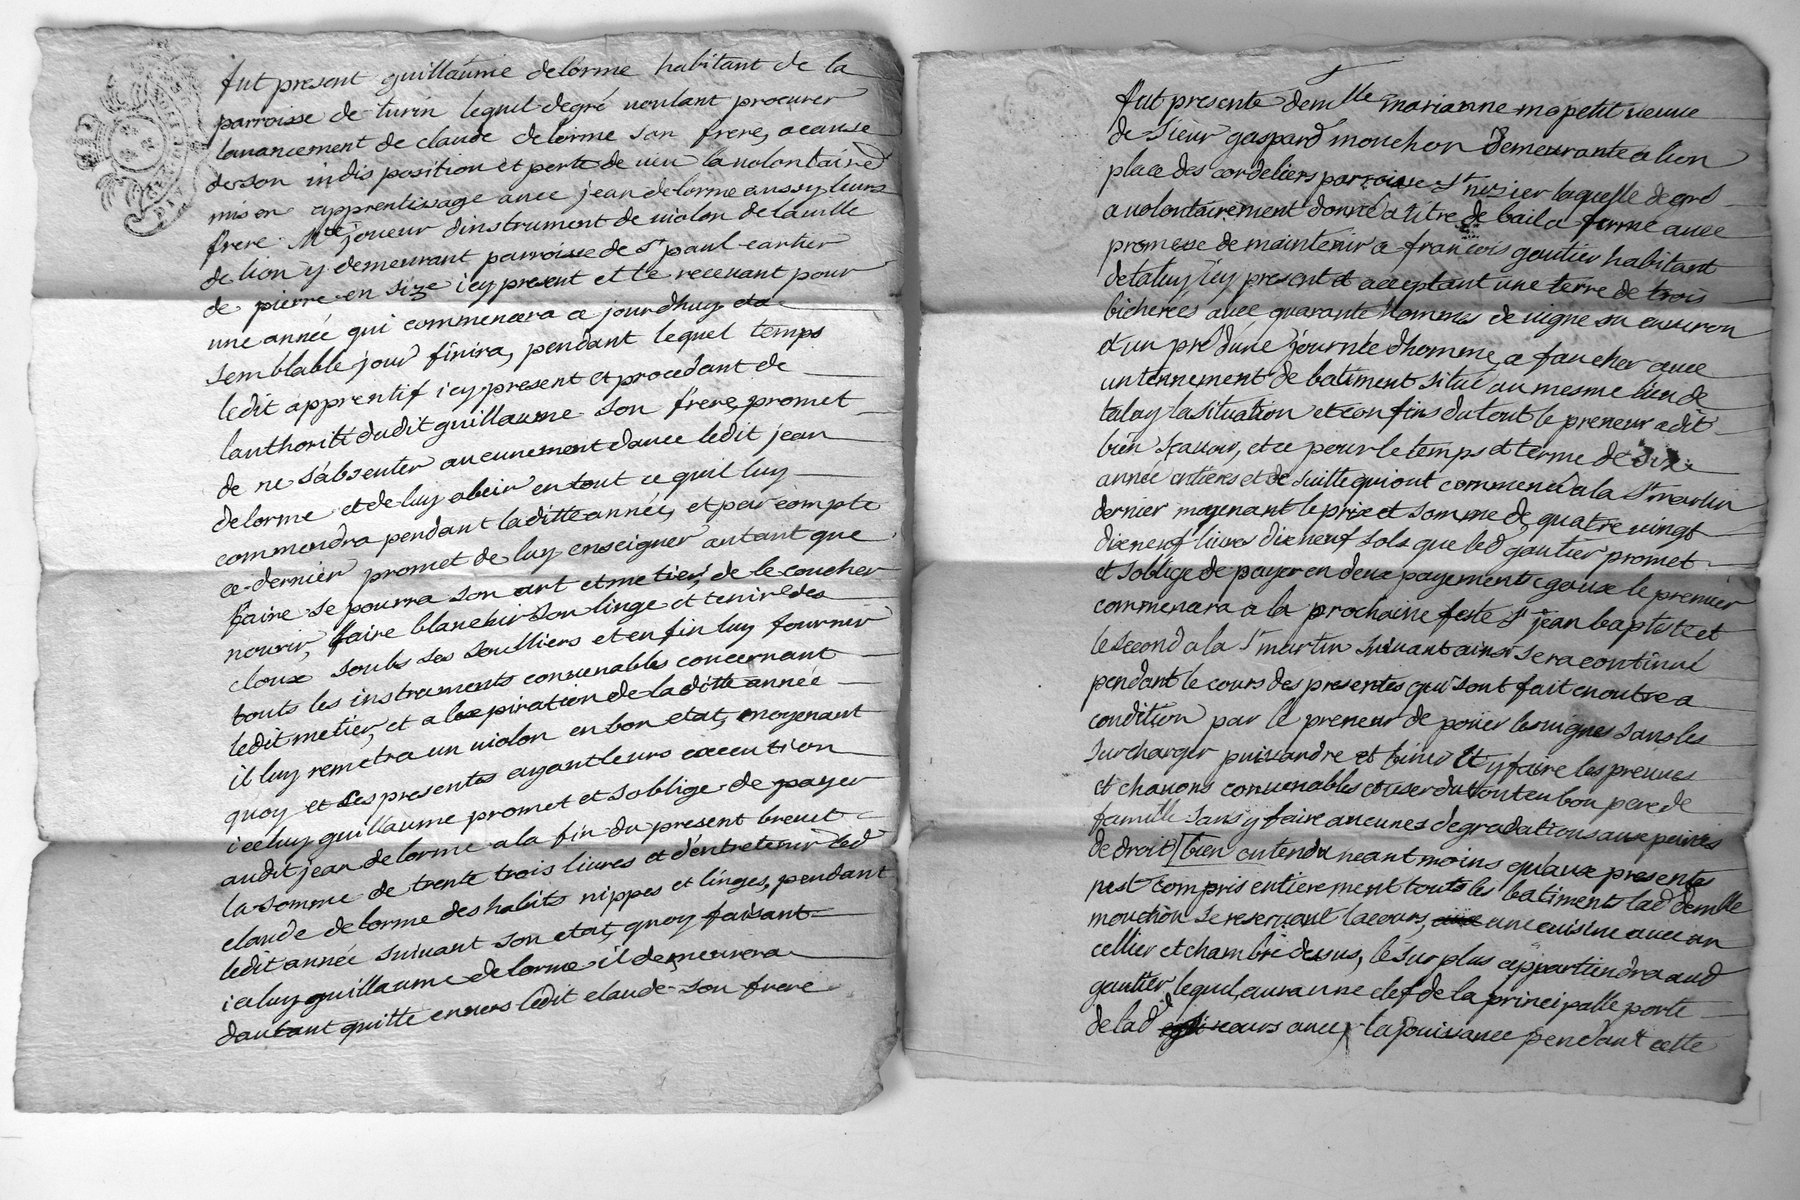 fut present guillaume delorme habitant de la
parroisse de turin lequel degré voulant procurer
lavancement de claude delorme son frere, acause
deson indisposition et perte de veu la volontaired
mis en apprentissage avec jean delorme aussy leurs
frere Mtre joueur dinstrument de violon de la ville
de lion y demeurant parroisse de St paul cartier
de pierre en size icy present et le recevant pour
une année qui commencera ce jourdhuy et a
semblable jour finira, pendant lequel temps
ledit apprentif icy present et procedant de
lauthorité dudit guillaume son frere, promet
de ne sabsenter aucunement davec ledit jean
delorme et de luy abeir en tout ce quil luy
commendra pendant laditte année, et par compte
ce dernier promet de luy enseigner autant que
faire se pourra son art et metier, de le coucher
nourir, faire blanchir son linge et tenir des
cloux soubs ses soulliers et enfin luy fournir
touts les instruments convenables concernant
ledit metier, et a lexpiration de laditte année
il luy remetra un violon en bon etat, moyenant
quoy et les presentes ayant leurs execution
iceluy guillaume promet et soblige de payer
audit jean delorme a la fin du present brevet
la somme de trente trois livres et dentretenir led
claude delorme des habits nippes et linges, pendant
ledit année suivant son etat, quoy faisant
iceluy guillaume delorme il demeurera
dautant quitte envers ledit claude son frere
fut presente demlle marianne mopetit veuve
de sieur gaspard mouchon demeurante a lion
place des cordeliers parroisse St nisier laquelle de gré
a volontairement donné a titre de bail a ferme avec
promesse de maintenir a francois gautier habitant
detaluy icy present et acceptant une terre de trois
bicherées avec quarante hommes de vigne ou environ
et un pré dune journée dhomme a faucher avec
un tennement de batiment situé au mesme lieu de
taluy la situation et confins du tout le preneur a dit
bien scavoir, et ce pour le temps et terme de
année entieres et de suitte qui ont commencé a la St martin
dernier moyenant le prix et somme de quatre vingt
dixneuf livres dixneuf sols que led gautier promet
et soblige de payer en deux payements egaux le premier
commencera a la prochaine feste St jean baptiste et
le second a la St martin suivant ainsi sera continué
pendant le cours des presentes qui sont fait en outre a
condition par le preneur de poüer les vignes sans les
surcharger puissandre et biner et y faire les preuves
et chavons convenables et user du tout en bon pere de
famille sans y faire aucunes degradations aux peines
de droit bien entendu neantmoins quaux presentes
nest compris entierement touts les batiments lad demlle
mouchon se reservant lacours, une cuisine avec un
cellier et chambre dessus, le surplus appartiendra aud
gautier lequel aura une clef de la principalle porte
de lad cours avec la jouissance pendant cette